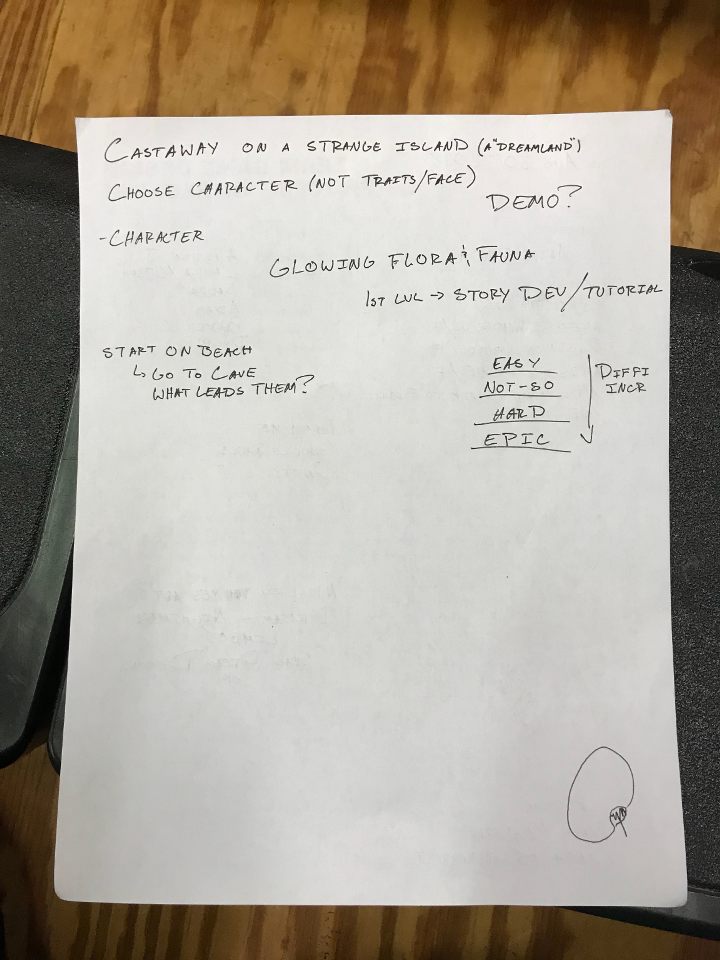 CASTAWAY ON A STRANGE ISLAND (A "DREAMLAND")
CHOOSE CHARACTER (NOT TRAITS/FACE)
DEMO?
- CHARACTER
GLOWING FLORA & FAUNA
1ST LVL → STORY DEV/TUTORIAL
START ON BEACH
↳ GO TO CAVE
WHAT LEADS THEM?
EASY
NOT-SO
HARD
EPIC
DIFFI
INCR